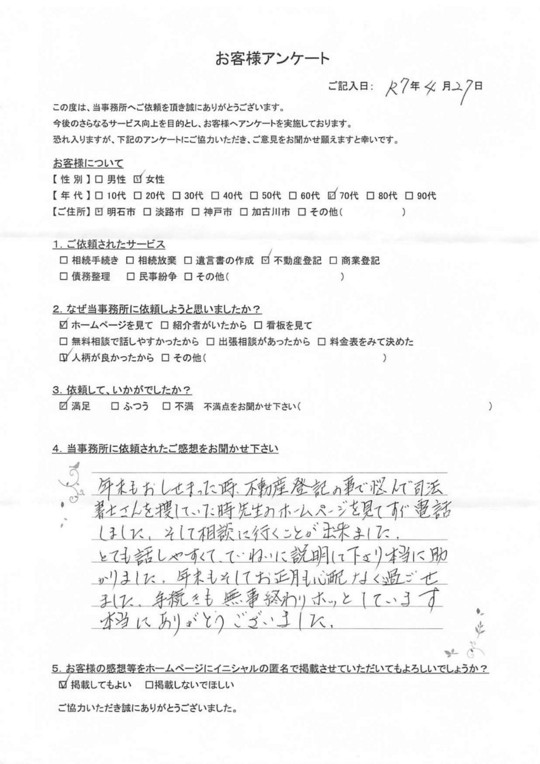 お客様アンケート
ご記入日: R7年4月27日
この度は、当事務所へご依頼を頂き誠にありがとうございます。
今後のさらなるサービス向上を目的とし、お客様へアンケートを実施しております。
恐れ入りますが、下記のアンケートにご協力いただき、ご意見をお聞かせ願えますと幸いです。
お客様について
【性別】□男性 ☑女性
【年代】□10代 □20代 □30代 □40代 □50代 □60代 ☑70代 □80代 □90代
【ご住所】☑明石市 □淡路市 □神戸市 □加古川市 □その他( )
1. ご依頼されたサービス
□相続手続き □相続放棄 □遺言書の作成 ☑不動産登記 □商業登記
□債務整理 □民事紛争 □その他( )
2. なぜ当事務所に依頼しようと思いましたか?
☑ホームページを見て □紹介者がいたから □看板を見て
□無料相談で話しやすかったから □出張相談があったから □料金表をみて決めた
☑人柄が良かったから □その他( )
3. 依頼して、いかがでしたか?
☑満足 □ふつう □不満 不満点をお聞かせ下さい( )
4. 当事務所に依頼されたご感想をお聞かせ下さい
年末もおしせまった時、不動産登記の事で悩んで司法
書士さんを捜していた時先生のホームページを見てすぐ電話
しました。そして相談に行くことが出来ました。
とても話しやすくて、ていねいに説明して下さり本当に助
かりました。年末もそしてお正月も心配なく過ごせ
ました。手続きも無事終わりホッとしています
本当にありがとうございました。
5. お客様の感想等をホームページにイニシャルの匿名で掲載させていただいてもよろしいでしょうか?
☑掲載してもよい □掲載しないでほしい
ご協力いただき誠にありがとうございました。